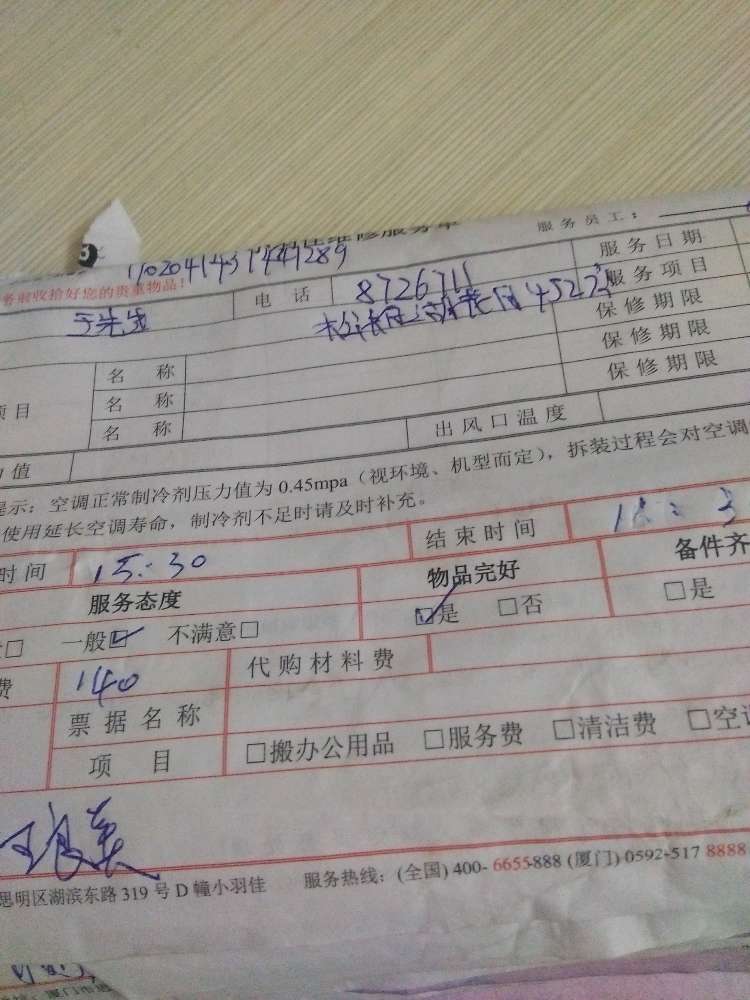 维修服务单
服务员工：
11020414371447289
务前收拾好您的贵重物品！
服务日期
电 话 8726711
服务项目
先生
4522
保修期限
名 称
保修期限
项目 名 称
保修期限
名 称
出风口温度
力值
提示：空调正常制冷剂压力值为 0.45mpa（视环境、机型而定），拆装过程会对空调
使用延长空调寿命，制冷剂不足时请及时补充。
时间 15:30 结束时间
服务态度 物品完好 备件齐
□ 一般☑ 不满意□ ☑是 □否 □是
费 140 代购材料费
票据名称
项 目 □搬办公用品 □服务费 □清洁费 □空调
思明区湖滨东路 319 号 D 幢小羽佳 服务热线：(全国) 400- 6655-888 (厦门) 0592-517 8888